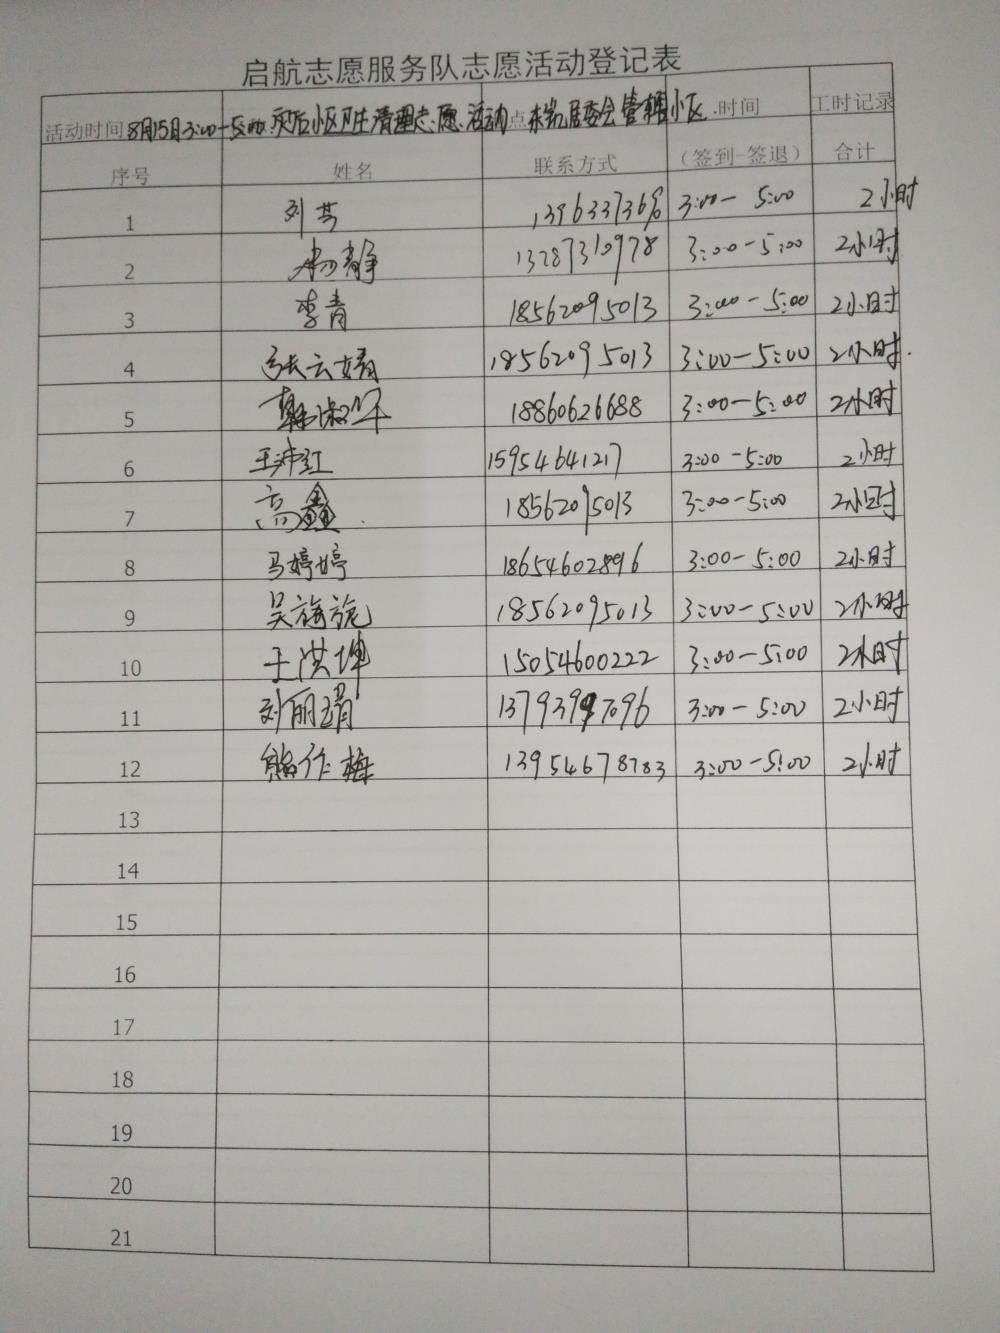 启航志愿服务队志愿活动登记表
活动时间 8月15日3:00-5:00 灾后小区卫生清理志愿活动 点 东凯居委会管辖小区 时间 工时记录
序号 姓名 联系方式 (签到-签退) 合计
1 刘芳 13963373696 3:00-5:00 2小时
2 杨静 13287310978 3:00-5:00 2小时
3 李青 18562095013 3:00-5:00 2小时
4 张云婧 18562095013 3:00-5:00 2小时.
5 18860626688 3:00-5:00 2小时
6 王沛红 15954641217 3:00-5:00 2小时
7 高鑫 18562095013 3:00-5:00 2小时
8 马婷婷 18654602896 3:00-5:00 2小时
9 吴旋旋 18562095013 3:00-5:00 2小时
10 王洪坤 15054600222 3:00-5:00 2小时
11 刘丽娟 13793997096 3:00-5:00 2小时
12 熊作梅 13954678783 3:00-5:00 2小时
13
14
15
16
17
18
19
20
21